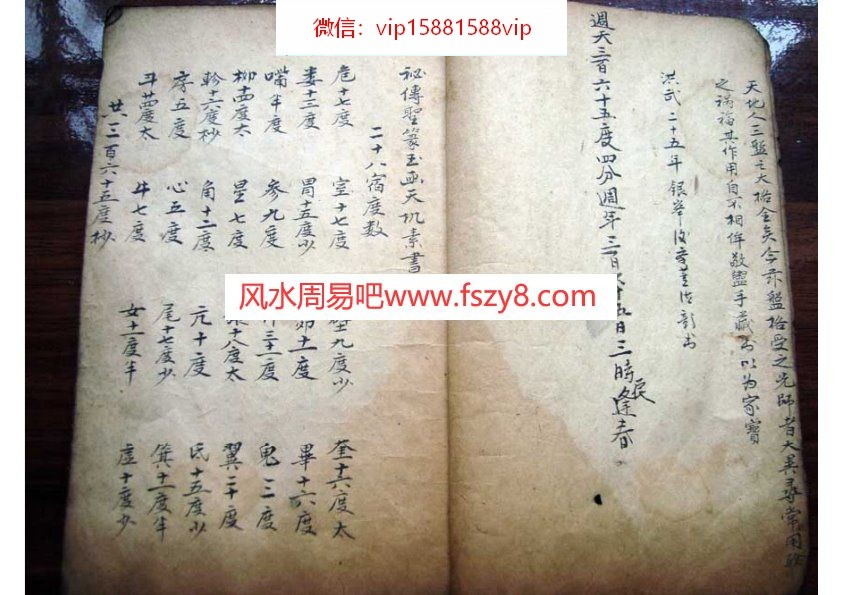 微信：vip15881588vip
天地人三盤之大格全矣今亦盤格受之先師者大異尋常用
之禍福其作用自不相侔敬盥手藏為以為家寶
洪武二十五年
週天三百六十五度四分週年三百六十五日三時戾逢春
秘傳聖篆玉函天机素書
二十八宿度数
危十七度 室十七度 壁九度少 奎十六度太
婁十三度 胃十五度少 昴十一度 畢十六度
嘴半度 參九度 井三十一度 鬼三度
柳十四度太 星七度 張十八度太 翼二十度
軫十六度杪 角十二度 亢十度 氐十五度少
房五度 心五度 尾十七度少 箕十一度半
斗廿四度太 牛七度 女十一度半 虛十度少
共三百六十五度杪
风水周易吧www.fszy8.com